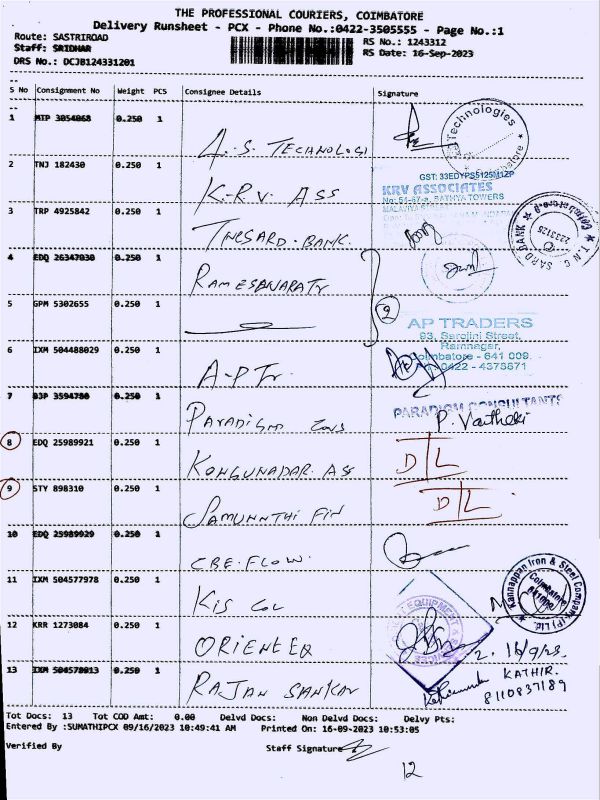 THE PROFESSIONAL COURIERS, COIMBATORE
Delivery Runsheet - PCX - Phone No.:0422-3505555 - Page No.:1
Route: SASTRIROAD
RS No.: 1243312
Staff: SRIDHAR
RS Date: 16-Sep-2023
DRS No.: DCJB124331201
S No Consignment No Weight PCS Consignee Details Signature
1 MTP 3054068 0.250 1 A.S. TECHNOLOGI
Technologies
2 TNJ 182430 0.250 1 K.R.V. ASS
GST: 33EDYPS5125M1ZP
KRV ASSOCIATES
3 TRP 4925842 0.250 1 TNGSARD. BANK.
T.N.G. SARD BANK
4 EDQ 26347030 0.250 1
2
5 GPM 5302655 0.250 1
AP TRADERS
93, Sarojini Street,
Ramnagar,
Coimbatore - 641 009.
0422 - 4378671
6 IXM 504488029 0.250 1 A.P Tr.
7 BJP 3594780 0.250 1 PARADIGM CONS
PARADIGM CONSULTANTS
8 EDQ 25989921 0.250 1 KONGUNADAR. ASS D/L
9 STY 898310 0.250 1 SAMUNNTHI FIN D/L
10 EDQ 25989929 0.250 1 CBE. FLOW.
11 IXM 504577978 0.250 1 KIS COL
Kannappan Iron & Steel Company (P) Ltd.
Coimbatore
12 KRR 1273084 0.250 1 ORIENTEQ
EQUIPMENT &
13 IXM 504578013 0.250 1 RAJAN SANKAR
KATHIR.
8110837189
Tot Docs: 13 Tot COD Amt: 0.00 Delvd Docs: Non Delvd Docs: Delvy Pts:
Entered By :SUMATHIPCX 09/16/2023 10:49:41 AM Printed On: 16-09-2023 10:53:05
Verified By Staff Signature
12